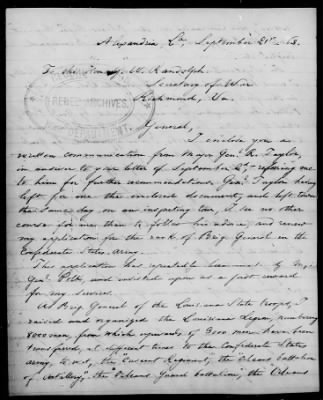 Alexandria, La, September 21st 62.
To the Hon. G. W. Randolph
Secretary of War
Richmond, Va.
REBEL ARCHIVES
DEPARTMENT.
General,
I enclose you a
written communication from Major Genl. R. Taylor,
in answer to your letter of September 2d, referring me
to him for further recommendations. Genl. Taylor having
left for me the enclosed document, and left town
the same day on an inspecting tour, I see no other
course for me than to follow his advice, and renew
my application for the rank of Brig General in the
Confederate States Army.
This application has repeatedly been met by
Genl. and insisted upon as a just reward
for my services.
As Brig General of the Louisiana State troops, I
raised and organized the Louisiana Legion, numbering
8000 men, from which upwards of 3000 men have been
transferred, at different times to the Confederate States
army, to wit, the "Crescent Regiment," the "Orleans battalion
of Artillery," the "Orleans Guard battalion," the Orleans